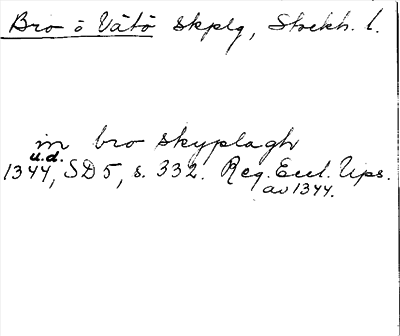 Bro o Vätö skplg, Stockh. l.
in bro skyplagh
u.d.
1344, SD5, s. 332. Reg. Eccl. Ups.
av 1344.